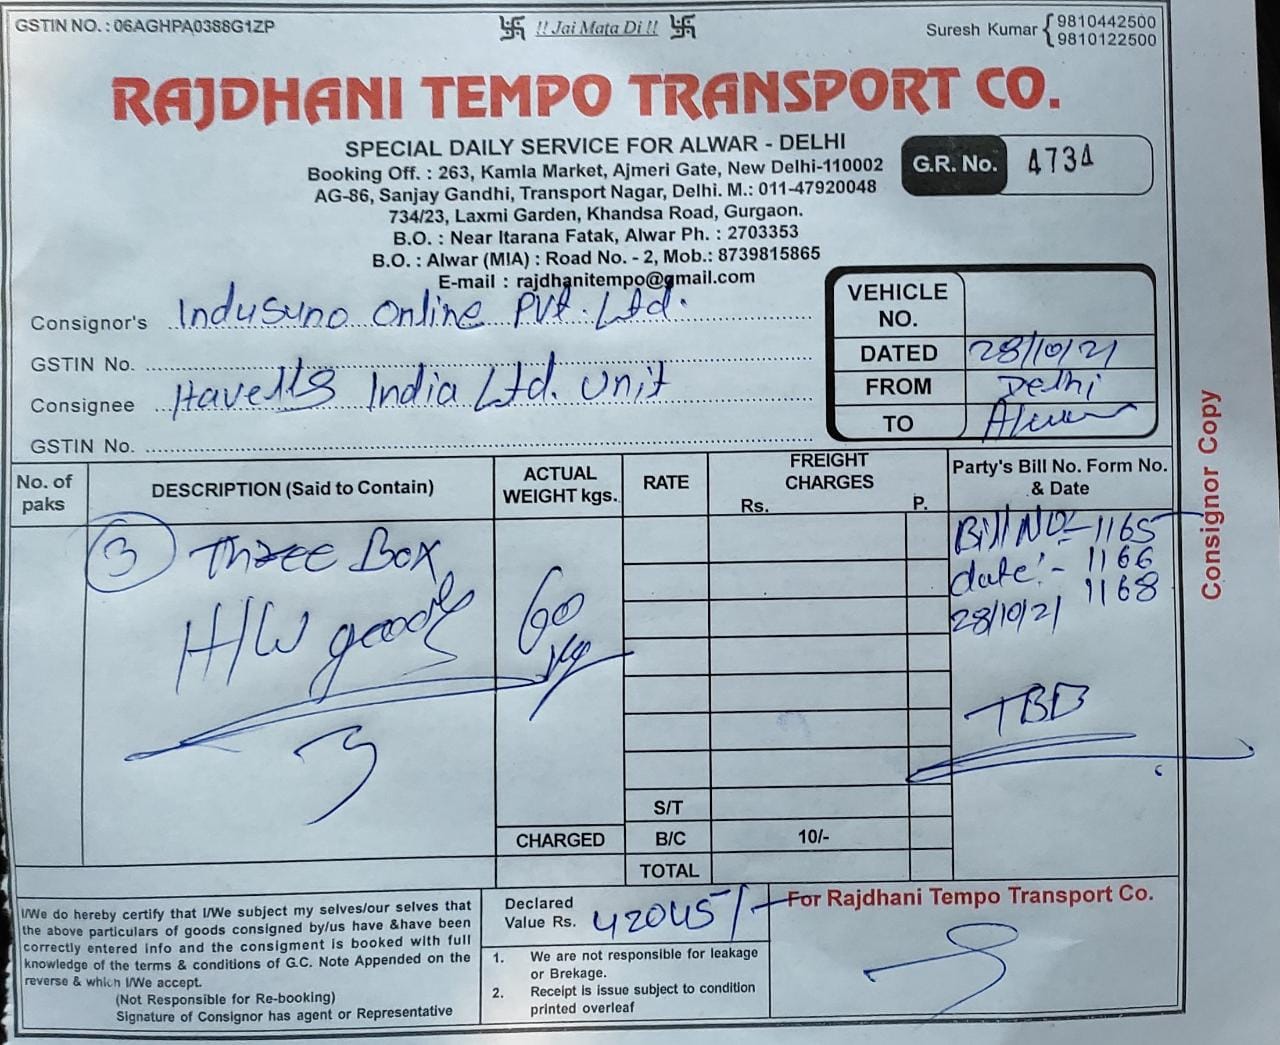 GSTIN NO. : 06AGHPA0388G1ZP
卐 !! Jai Mata Di !! 卐
Suresh Kumar { 9810442500
9810122500
RAJDHANI TEMPO TRANSPORT CO.
SPECIAL DAILY SERVICE FOR ALWAR - DELHI
Booking Off. : 263, Kamla Market, Ajmeri Gate, New Delhi-110002
AG-86, Sanjay Gandhi, Transport Nagar, Delhi. M.: 011-47920048
734/23, Laxmi Garden, Khandsa Road, Gurgaon.
B.O. : Near Itarana Fatak, Alwar Ph. : 2703353
B.O. : Alwar (MIA) : Road No. - 2, Mob.: 8739815865
E-mail : rajdhanitempo@gmail.com
G.R. No. 4734
Consignor's Indusuno Online Pvt. Ltd.
GSTIN No.
Consignee Havells India Ltd. Unit
GSTIN No.
VEHICLE
NO.
DATED 28/10/21
FROM Delhi
TO Alwar
Consignor Copy
No. of
paks
DESCRIPTION (Said to Contain)
ACTUAL
WEIGHT kgs.
RATE
FREIGHT
CHARGES
Rs. P.
Party's Bill No. Form No.
& Date
3 Three Box
H/W goods
3
60
kg
Bill NO:- 1165
date:- 1166
1168
28/10/21
TBB
S/T
CHARGED B/C 10/-
TOTAL
I/We do hereby certify that I/We subject my selves/our selves that
the above particulars of goods consigned by/us have &have been
correctly entered info and the consigment is booked with full
knowledge of the terms & conditions of G.C. Note Appended on the
reverse & which I/We accept.
(Not Responsible for Re-booking)
Signature of Consignor has agent or Representative
Declared
Value Rs. 42045/-
1. We are not responsible for leakage
or Brekage.
2. Receipt is issue subject to condition
printed overleaf
For Rajdhani Tempo Transport Co.